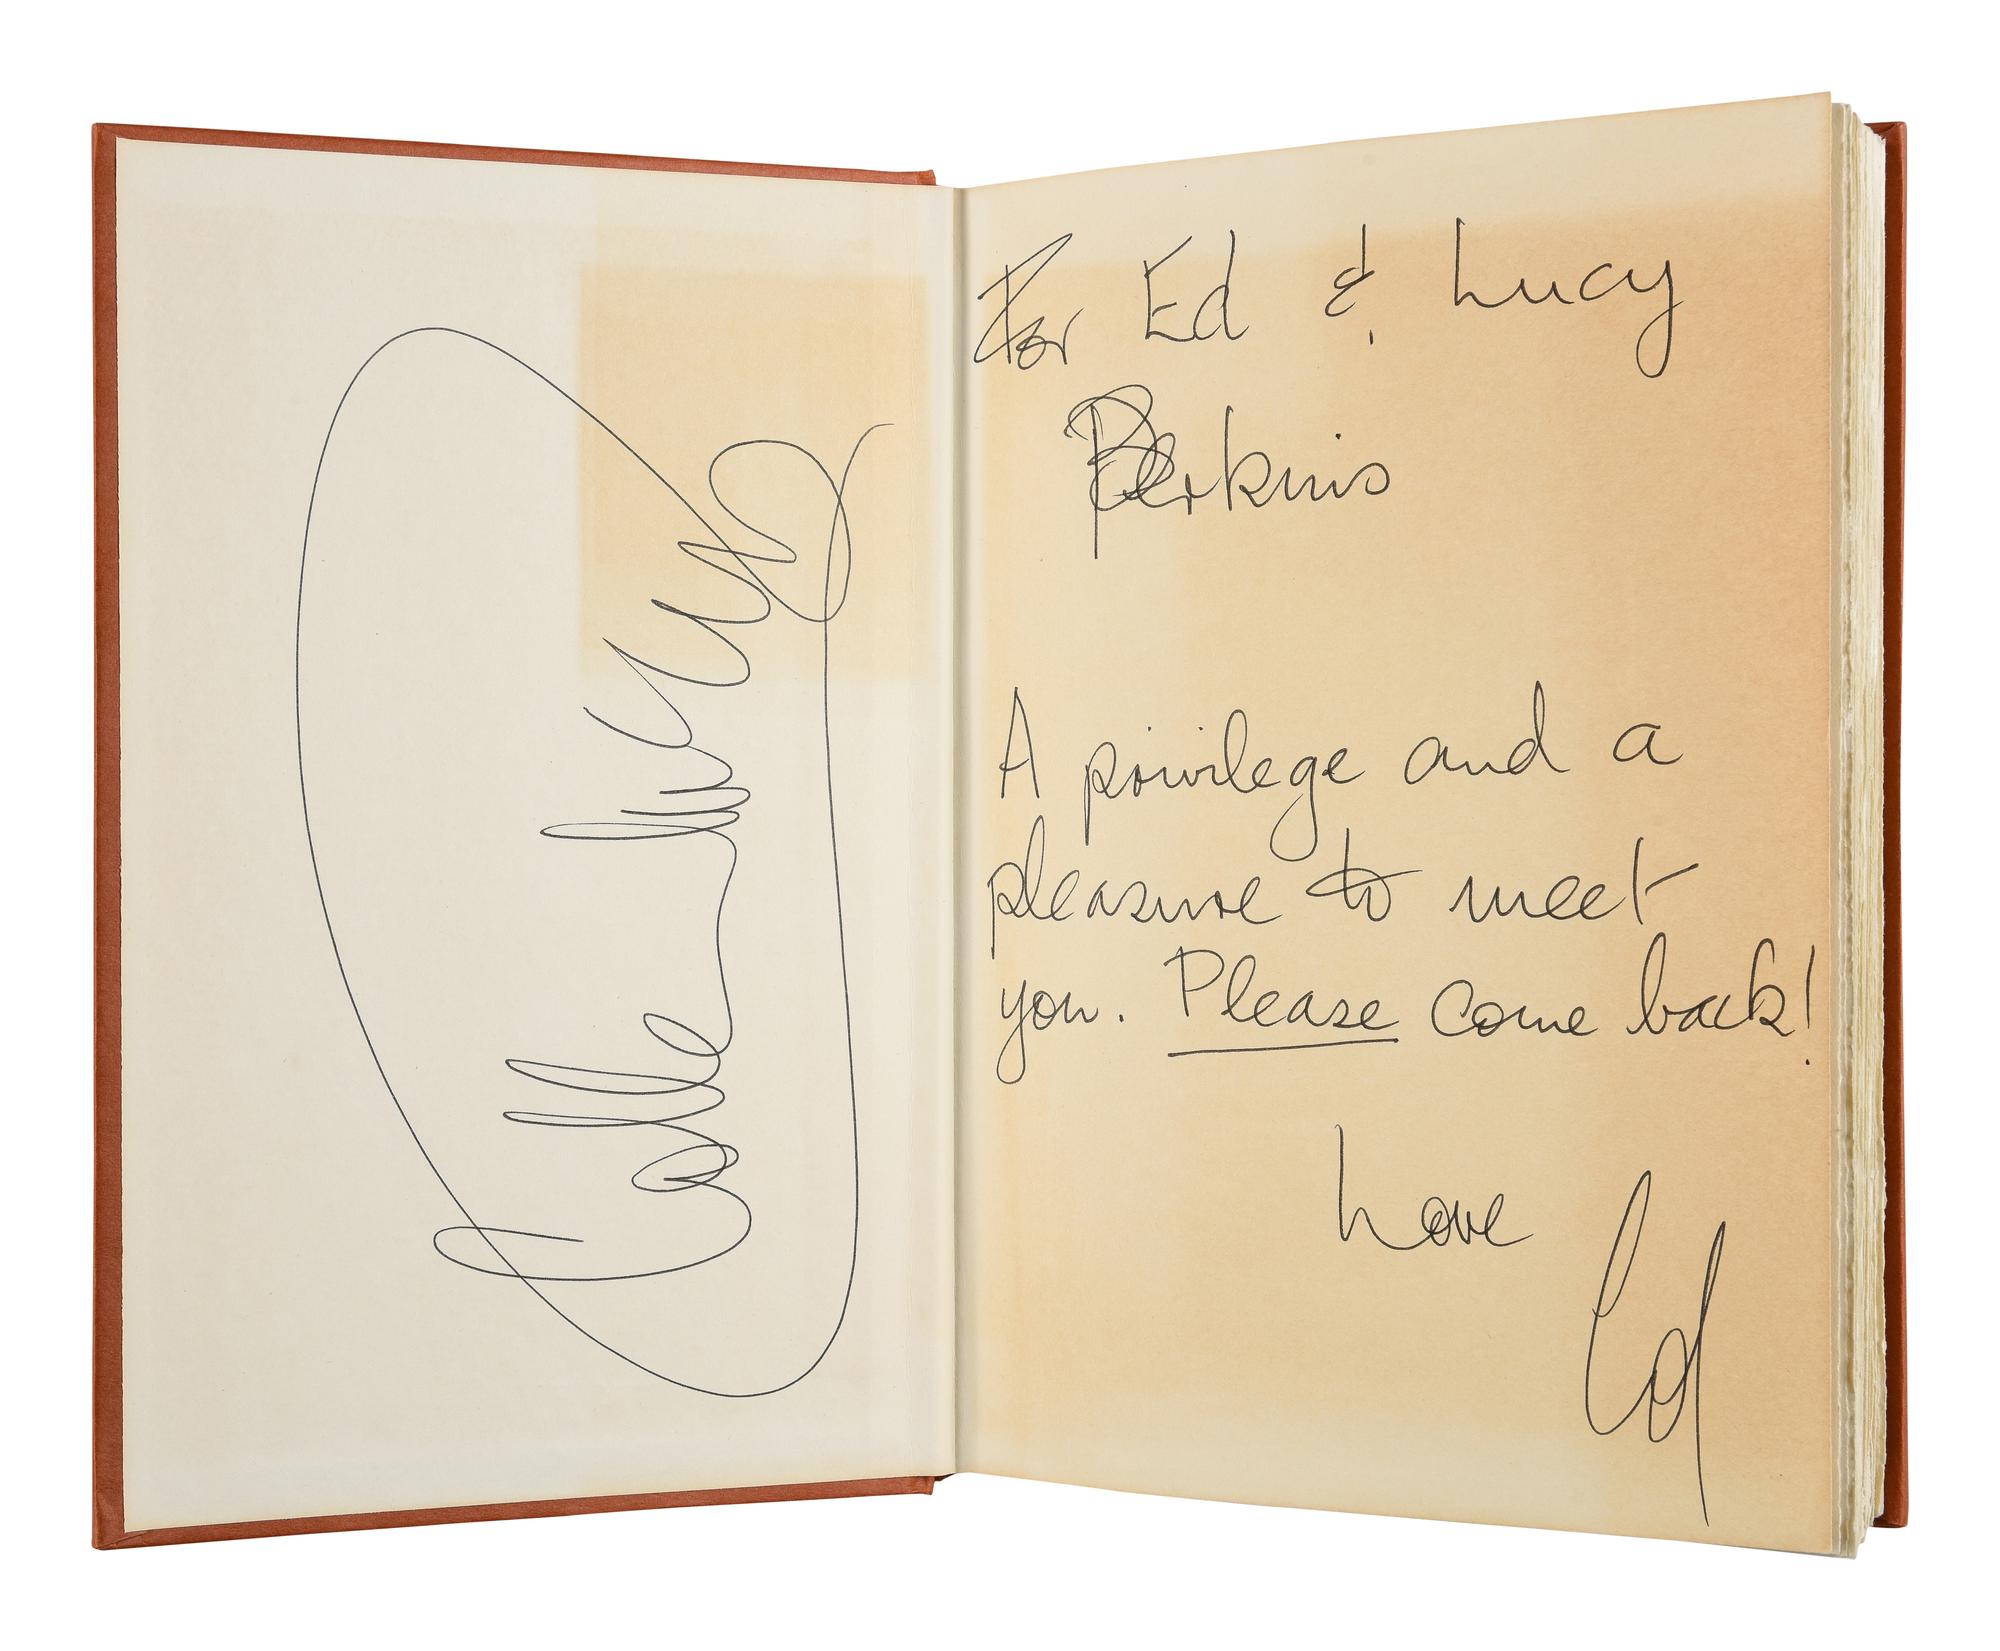 For Ed & Lucy
Perkins
A privilege and a
pleasure to meet
you. Please come back!
Love
Ed